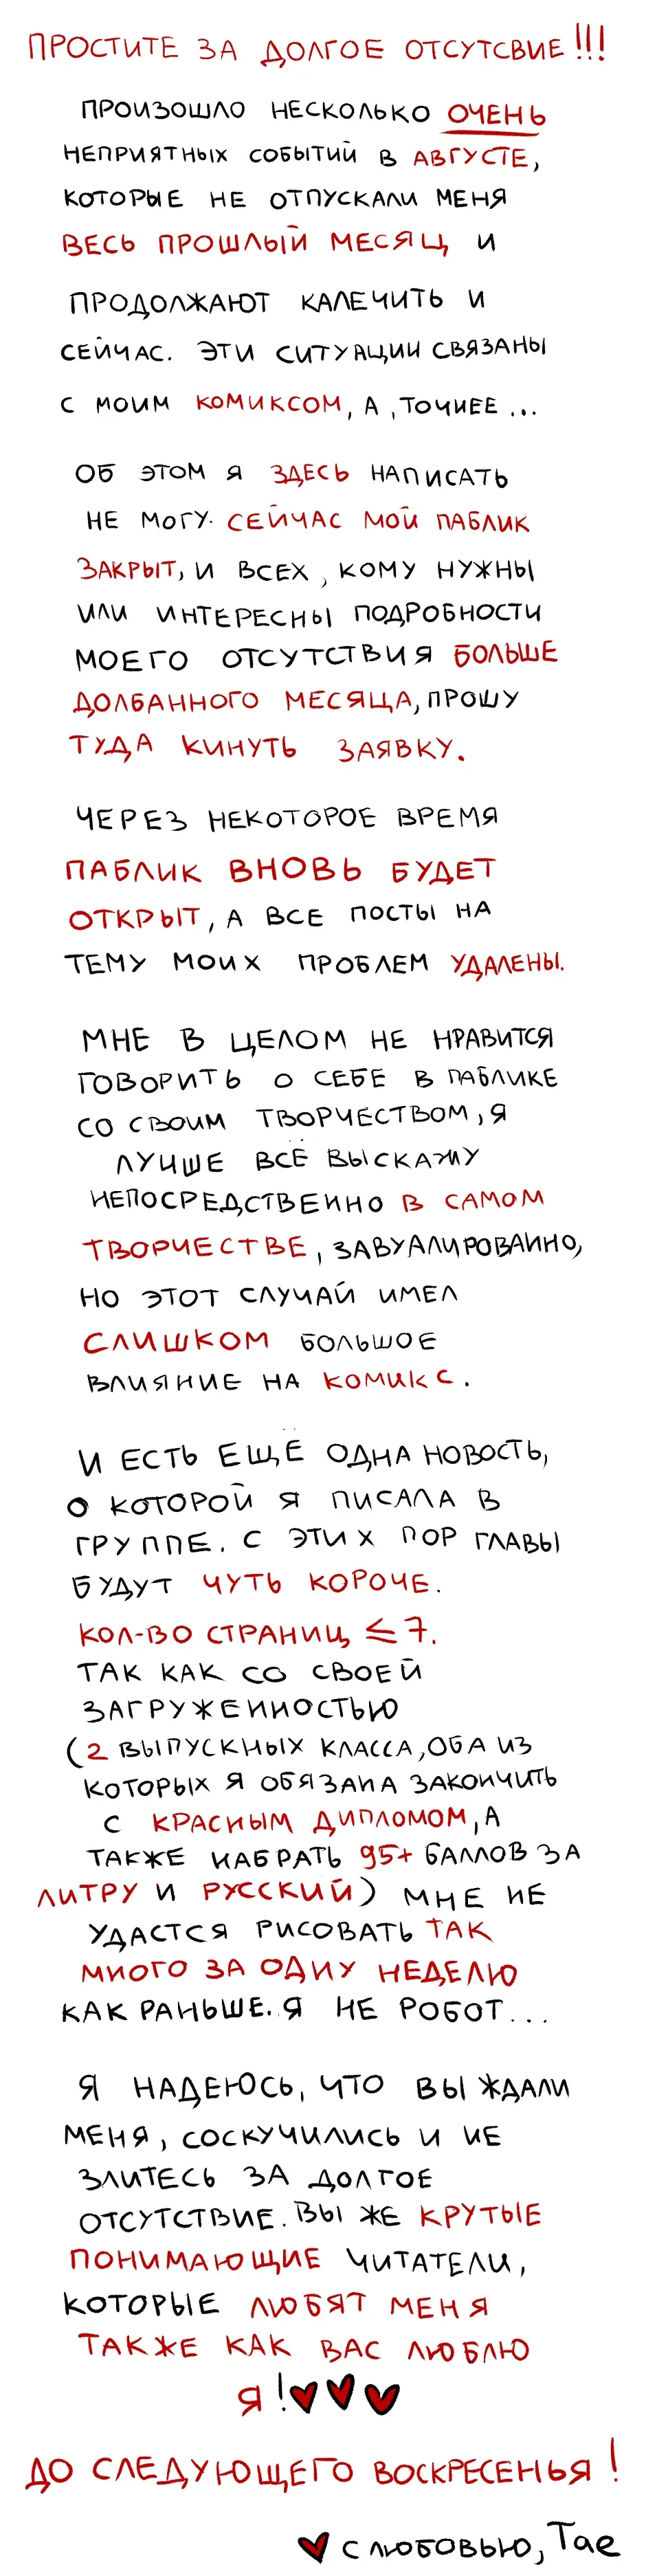 ПРОСТИТЕ ЗА ДОЛГОЕ ОТСУТСВИЕ!!!
ПРОИЗОШЛО НЕСКОЛЬКО ОЧЕНЬ
НЕПРИЯТНЫХ СОБЫТИЙ В АВГУСТЕ,
КОТОРЫЕ НЕ ОТПУСКАЛИ МЕНЯ
ВЕСЬ ПРОШЛЫЙ МЕСЯЦ И
ПРОДОЛЖАЮТ КАЛЕЧИТЬ И
СЕЙЧАС. ЭТИ СИТУАЦИИ СВЯЗАНЫ
С МОИМ КОМИКСОМ, А, ТОЧНЕЕ...
ОБ ЭТОМ Я ЗДЕСЬ НАПИСАТЬ
НЕ МОГУ. СЕЙЧАС МОЙ ПАБЛИК
ЗАКРЫТ, И ВСЕХ, КОМУ НУЖНЫ
ИЛИ ИНТЕРЕСНЫ ПОДРОБНОСТИ
МОЕГО ОТСУТСТВИЯ БОЛЬШЕ
ДОЛБАННОГО МЕСЯЦА, ПРОШУ
ТУДА КИНУТЬ ЗАЯВКУ.
ЧЕРЕЗ НЕКОТОРОЕ ВРЕМЯ
ПАБЛИК ВНОВЬ БУДЕТ
ОТКРЫТ, А ВСЕ ПОСТЫ НА
ТЕМУ МОИХ ПРОБЛЕМ УДАЛЕНЫ.
МНЕ В ЦЕЛОМ НЕ НРАВИТСЯ
ГОВОРИТЬ О СЕБЕ В ПАБЛИКЕ
СО СВОИМ ТВОРЧЕСТВОМ, Я
ЛУЧШЕ ВСЁ ВЫСКАЖУ
НЕПОСРЕДСТВЕННО В САМОМ
ТВОРЧЕСТВЕ, ЗАВУАЛИРОВАННО,
НО ЭТОТ СЛУЧАЙ ИМЕЛ
СЛИШКОМ БОЛЬШОЕ
ВЛИЯНИЕ НА КОМИКС.
И ЕСТЬ ЕЩЁ ОДНА НОВОСТЬ,
О КОТОРОЙ Я ПИСАЛА В
ГРУППЕ. С ЭТИХ ПОР ГЛАВЫ
БУДУТ ЧУТЬ КОРОЧЕ.
КОЛ-ВО СТРАНИЦ ≤ 7.
ТАК КАК СО СВОЕЙ
ЗАГРУЖЕННОСТЬЮ
(2 ВЫПУСКНЫХ КЛАССА, ОБА ИЗ
КОТОРЫХ Я ОБЯЗАНА ЗАКОНЧИТЬ
С КРАСНЫМ ДИПЛОМОМ, А
ТАКЖЕ НАБРАТЬ 95+ БАЛЛОВ ЗА
ЛИТРУ И РУССКИЙ) МНЕ НЕ
УДАСТСЯ РИСОВАТЬ ТАК
МНОГО ЗА ОДНУ НЕДЕЛЮ
КАК РАНЬШЕ. Я НЕ РОБОТ...
Я НАДЕЮСЬ, ЧТО ВЫ ЖДАЛИ
МЕНЯ, СОСКУЧИЛИСЬ И НЕ
ЗЛИТЕСЬ ЗА ДОЛГОЕ
ОТСУТСТВИЕ. ВЫ ЖЕ КРУТЫЕ
ПОНИМАЮЩИЕ ЧИТАТЕЛИ,
КОТОРЫЕ ЛЮБЯТ МЕНЯ
ТАКЖЕ КАК ВАС ЛЮБЛЮ
Я!♥♥♥
ДО СЛЕДУЮЩЕГО ВОСКРЕСЕНЬЯ!
♥ С ЛЮБОВЬЮ, Tae